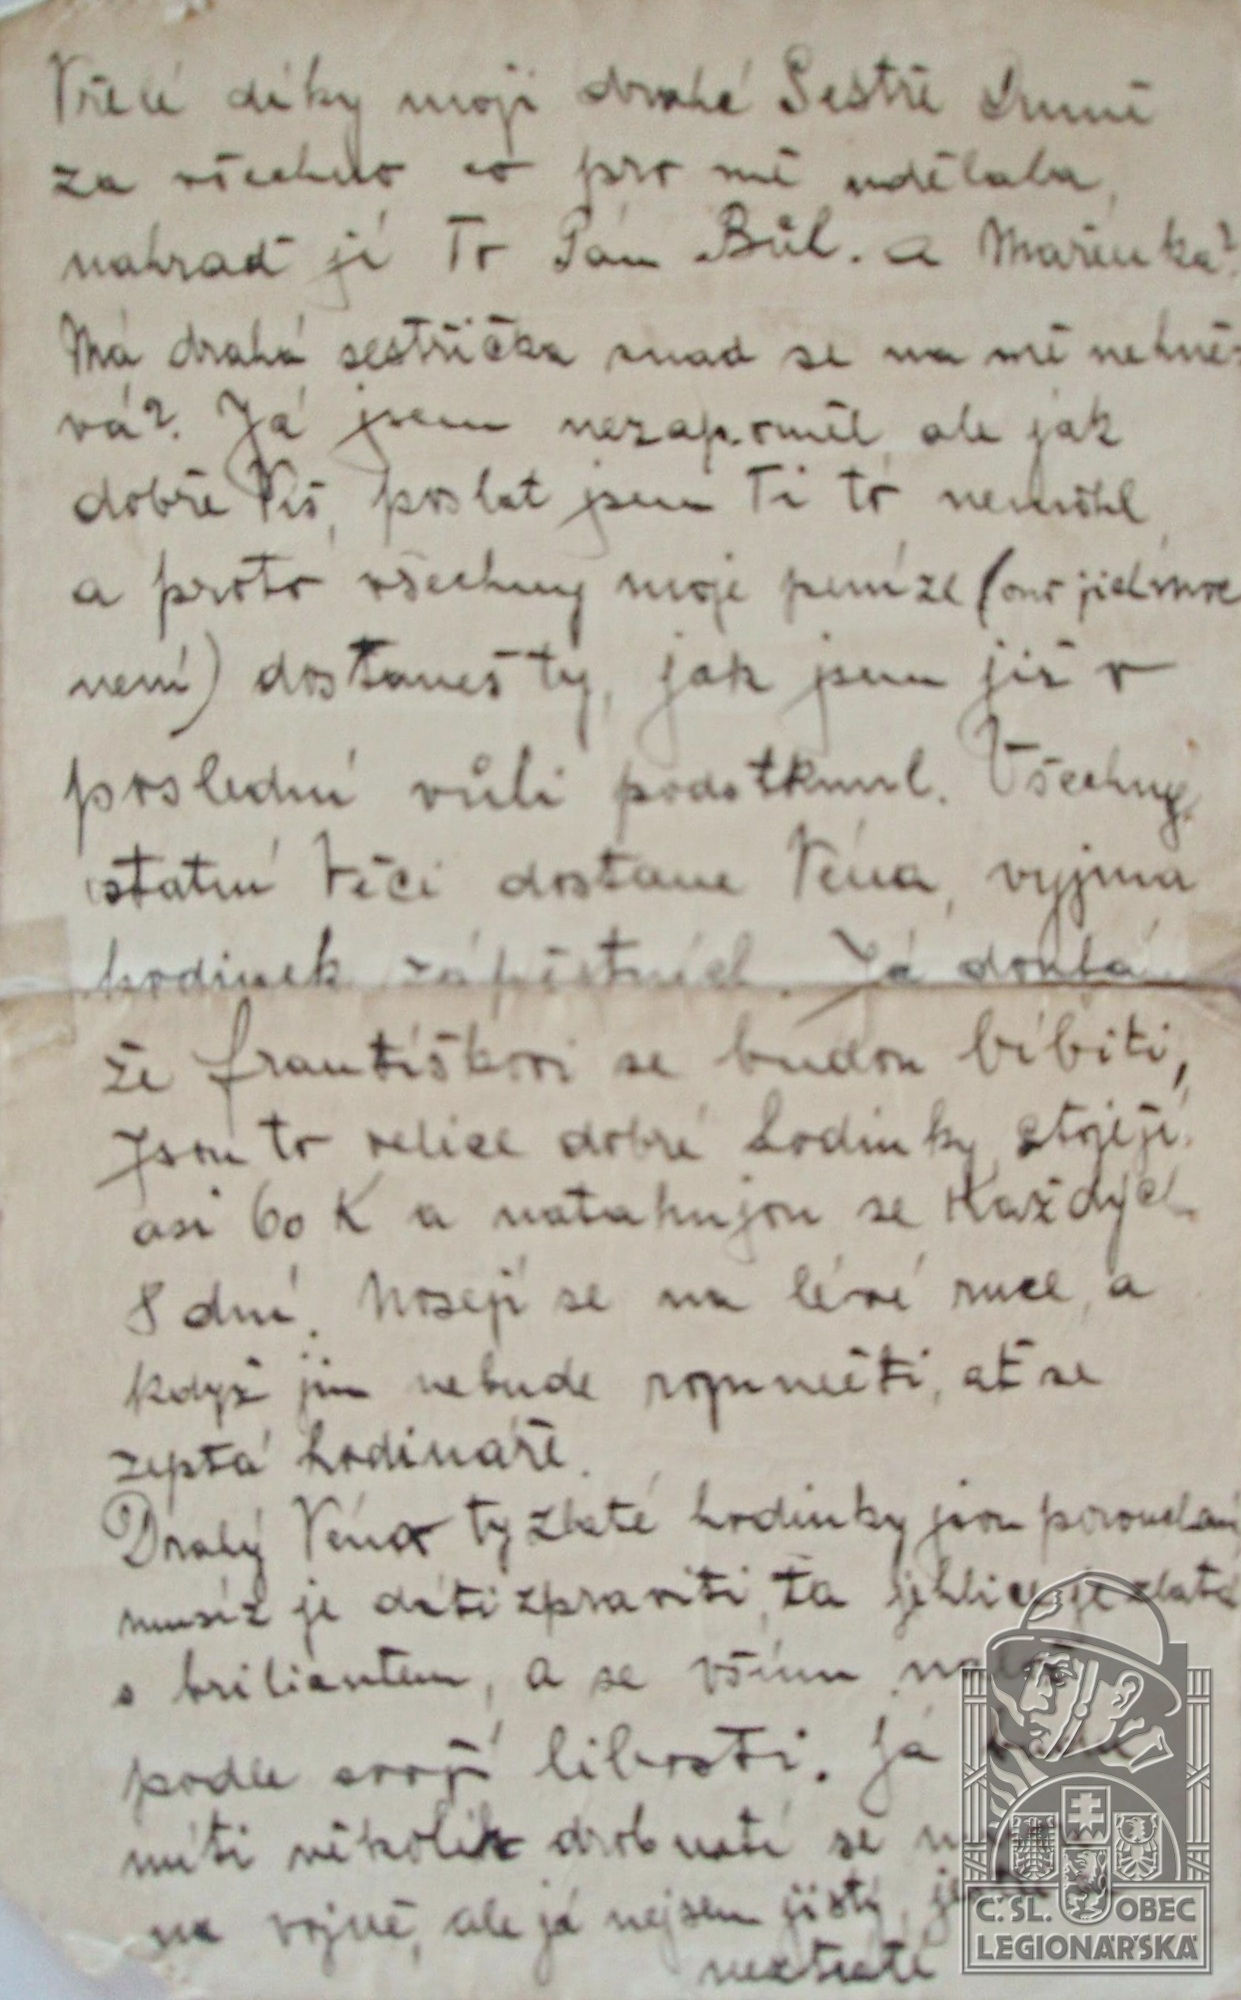 Vřelé díky moji drahé Sestře
za všechno co pro mě udělala,
nahraď jí to Pán Bůh. a Mařenka?
Má drahá sestřička snad se na mě nehně-
vá? Já jsem nezapoměl ale jak
dobře Víš, poslat jsem Ti to nemohl
a proto všechny moje peníze (ono jich moc
není) dostaneš ty, jak jsem již v
poslední vůli podotknul. Všechny
ostatní Věci dostane Véna, vyjma
hodinek zápěstních. Já doufá
že františkovi se budou líbiti,
Jsou to velice dobré hodinky stojejí
asi 60 K a natahujou se každých
8 dní. Nosejí se na levé ruce, a
když jim nebude rozumněti, ať se
zeptá hodináře.
Drahý Véno ty zlaté hodinky jsou porouchaný
musíž je dáti zpraviti, ta jehlice je zlatá
s briliantem, a se vším
podle svojí libosti. Já
míti několik drobností se
na vojně, ale já nejsem jistý,
neztratí
C. SL. OBEC
LEGIONÁŘSKÁ